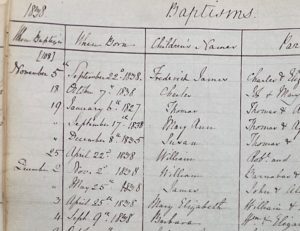 1838 Baptisms.
When Baptis When Born Children's Names Par
[108]
November 5th September 22d 1838 Frederick James Charles & E
18 October 7th 1838 Charles & Mary
19 January 6th 1827 Thomas Thomas &
" September 17th 1838 Mary Ann Thomas &
" December 8th 1835 Susan Thomas &
25 April 22d 1838 William Robt and
December 2 Novr 2d 1838 William Barnabas &
" May 25th 1838 James John &
3 April 25th 1838 Mary Elizabeth William &
4 Septr 9th 1838 Barbara Wm &